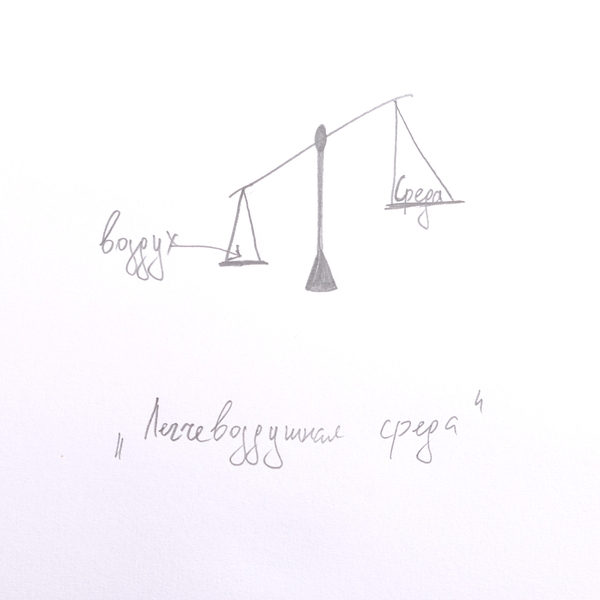 Среда
воздух
„Легчевоздушная среда"